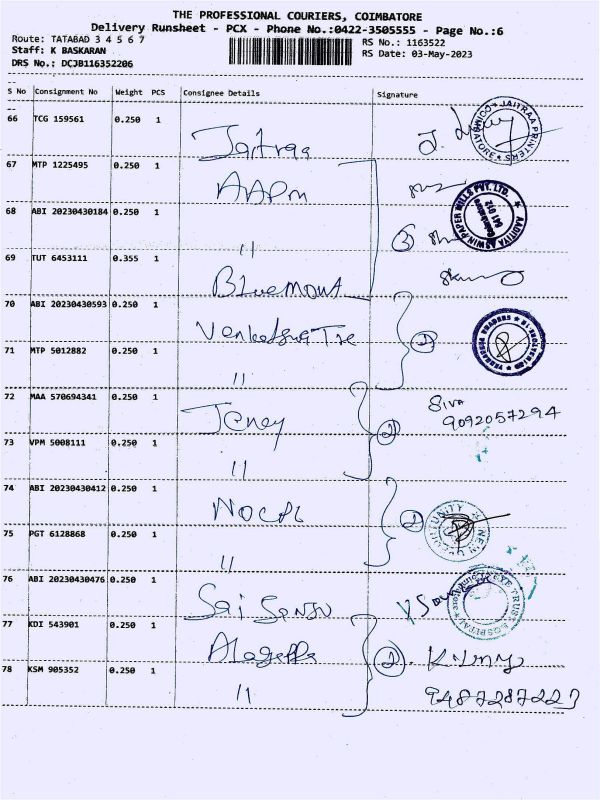 THE PROFESSIONAL COURIERS, COIMBATORE
Delivery Runsheet - PCX - Phone No.:0422-3505555 - Page No.:6
Route: TATABAD 3 4 5 6 7
RS No.: 1163522
Staff: K BASKARAN
RS Date: 03-May-2023
DRS No.: DCJB116352206
S No Consignment No Weight PCS Consignee Details Signature
66 TCG 159561 0.250 1 Jaitraa
JAITRAA PRINTERS COIMBATORE
67 MTP 1225495 0.250 1 AAPM
AADITYA ASWIN PAPER MILLS PVT. LTD. Coimbatore 641 012
68 ABI 20230430184 0.250 1 " 3
69 TUT 6453111 0.355 1 Bluemount
70 ABI 20230430593 0.250 1 2
71 MTP 5012882 0.250 1 "
72 MAA 570694341 0.250 1 Jeney 2 Siva
9092057294
73 VPM 5008111 0.250 1 "
74 ABI 20230430412 0.250 1 NOCPL 2
75 PGT 6128868 0.250 1 "
76 ABI 20230430476 0.250 1 Sai
EYE TRUST HOSPITAL
77 KDI 543901 0.250 1 2
78 KSM 905352 0.250 1 "
9487287227